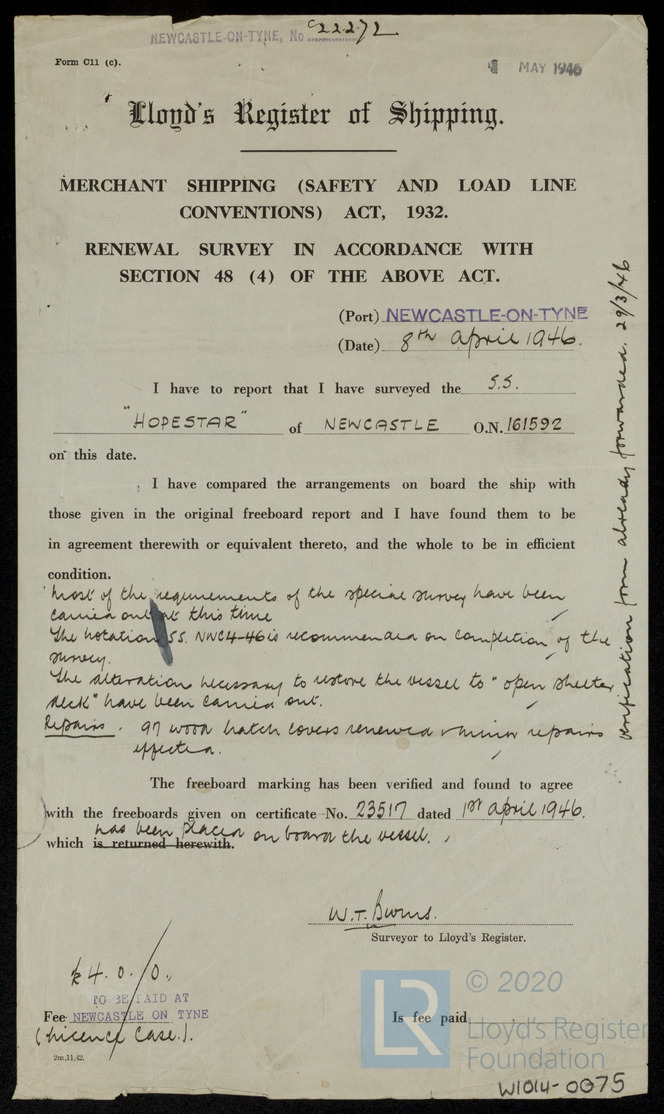 NEWCASTLE-ON-TYNE, No. C22272
Form C11 (c).
MAY 1946
Lloyd's Register of Shipping.
MERCHANT SHIPPING (SAFETY AND LOAD LINE
CONVENTIONS) ACT, 1932.
RENEWAL SURVEY IN ACCORDANCE WITH
SECTION 48 (4) OF THE ABOVE ACT.
(Port) NEWCASTLE-ON-TYNE
(Date) 8th April 1946.
I have to report that I have surveyed the S.S.
"HOPESTAR" of NEWCASTLE O.N. 161592
on this date.
I have compared the arrangements on board the ship with
those given in the original freeboard report and I have found them to be
in agreement therewith or equivalent thereto, and the whole to be in efficient
condition.
Most of the requirements of the special survey have been
carried out at this time
The notation S.S. NWC4-46 is recommended on completion of the
survey.
The alteration necessary to restore the vessel to "open shelter
deck" have been carried out.
Repairs. 97 wood hatch covers renewed & minor repairs
effected.
The freeboard marking has been verified and found to agree
with the freeboards given on certificate No. 23517 dated 1st April 1946.
has been placed on board the vessel.
which is returned herewith.
W.T. Burns.
Surveyor to Lloyd's Register.
£4.0.0.
TO BE PAID AT
Fee NEWCASTLE ON TYNE
Is fee paid
(Licence Case.).
2m,11,42.
verification form already forwarded. 29/3/46
LR
© 2020
Lloyd's Register
Foundation
W1014-0075